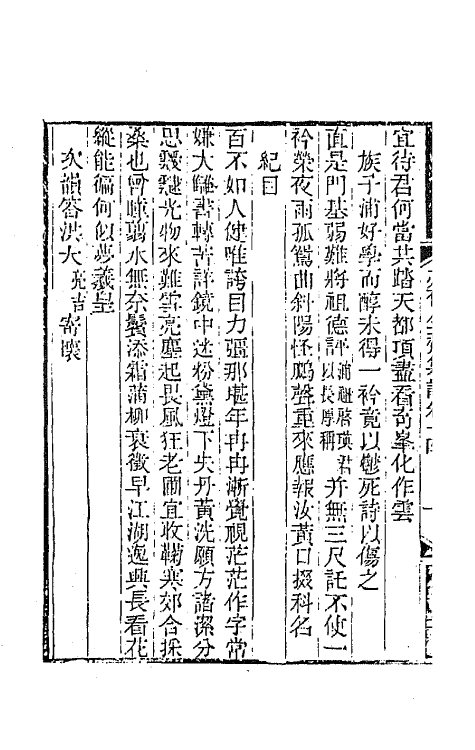 宜待君何當共踏天都頂盡看奇峯化作雲
族子浦好學而醇未得一衿竟以鬱死詩以傷之
直是門基弱難將祖德評浦祖啓瑛君以長厚稱并無三尺託不使一
衿榮夜雨孤鴛曲斜陽怪鵩聲重來應報汝黃口掇科名
紀目
百不如人健唯誇目力彊那堪年冉冉漸覺視茫茫作字常
嫌大雠書轉苦詳鏡中迷粉黛燈下失丹黃洗願方諸潔分
思靉靆光物來難雪亮塵起畏風狂老圃宜收菊寒郊合採
桑也曾瞳翦水無奈鬢添霜蒲柳衰徵早江湖逸興長看花
縱能徧何似夢羲皇
次韻答洪大亮吉寄懷